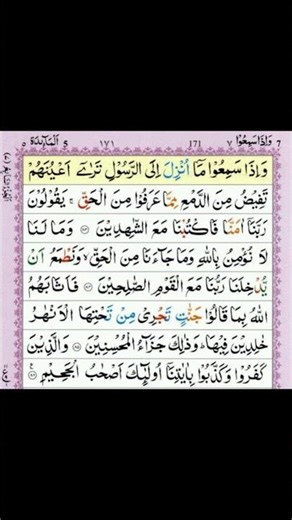 ٧ وَاِذَا سَمِعُوْا ٧ 171 ١٧١ اَلْمَآئِدَة ٥ ٥
وَاِذَا سَمِعُوْا مَآ اُنْزِلَ اِلَى الرَّسُوْلِ تَرٰٓى اَعْيُنَهُمْ
تَفِيْضُ مِنَ الدَّمْعِ مِمَّا عَرَفُوْا مِنَ الْحَقِّ ۚ يَقُوْلُوْنَ
رَبَّنَآ اٰمَنَّا فَاكْتُبْنَا مَعَ الشّٰهِدِيْنَ ۝٨٣ وَمَا لَنَا
لَا نُؤْمِنُ بِاللّٰهِ وَمَا جَآءَنَا مِنَ الْحَقِّ ۙ وَنَطْمَعُ اَنْ
يُّدْخِلَنَا رَبُّنَا مَعَ الْقَوْمِ الصّٰلِحِيْنَ ۝٨٤ فَاَثَابَهُمُ
اللّٰهُ بِمَا قَالُوْا جَنّٰتٍ تَجْرِيْ مِنْ تَحْتِهَا الْاَنْهٰرُ
خٰلِدِيْنَ فِيْهَا ۭ وَذٰلِكَ جَزَآءُ الْمُحْسِنِيْنَ ۝٨٥ وَالَّذِيْنَ
كَفَرُوْا وَكَذَّبُوْا بِاٰيٰتِنَآ اُولٰٓئِكَ اَصْحٰبُ الْجَحِيْمِ ۝٨٦